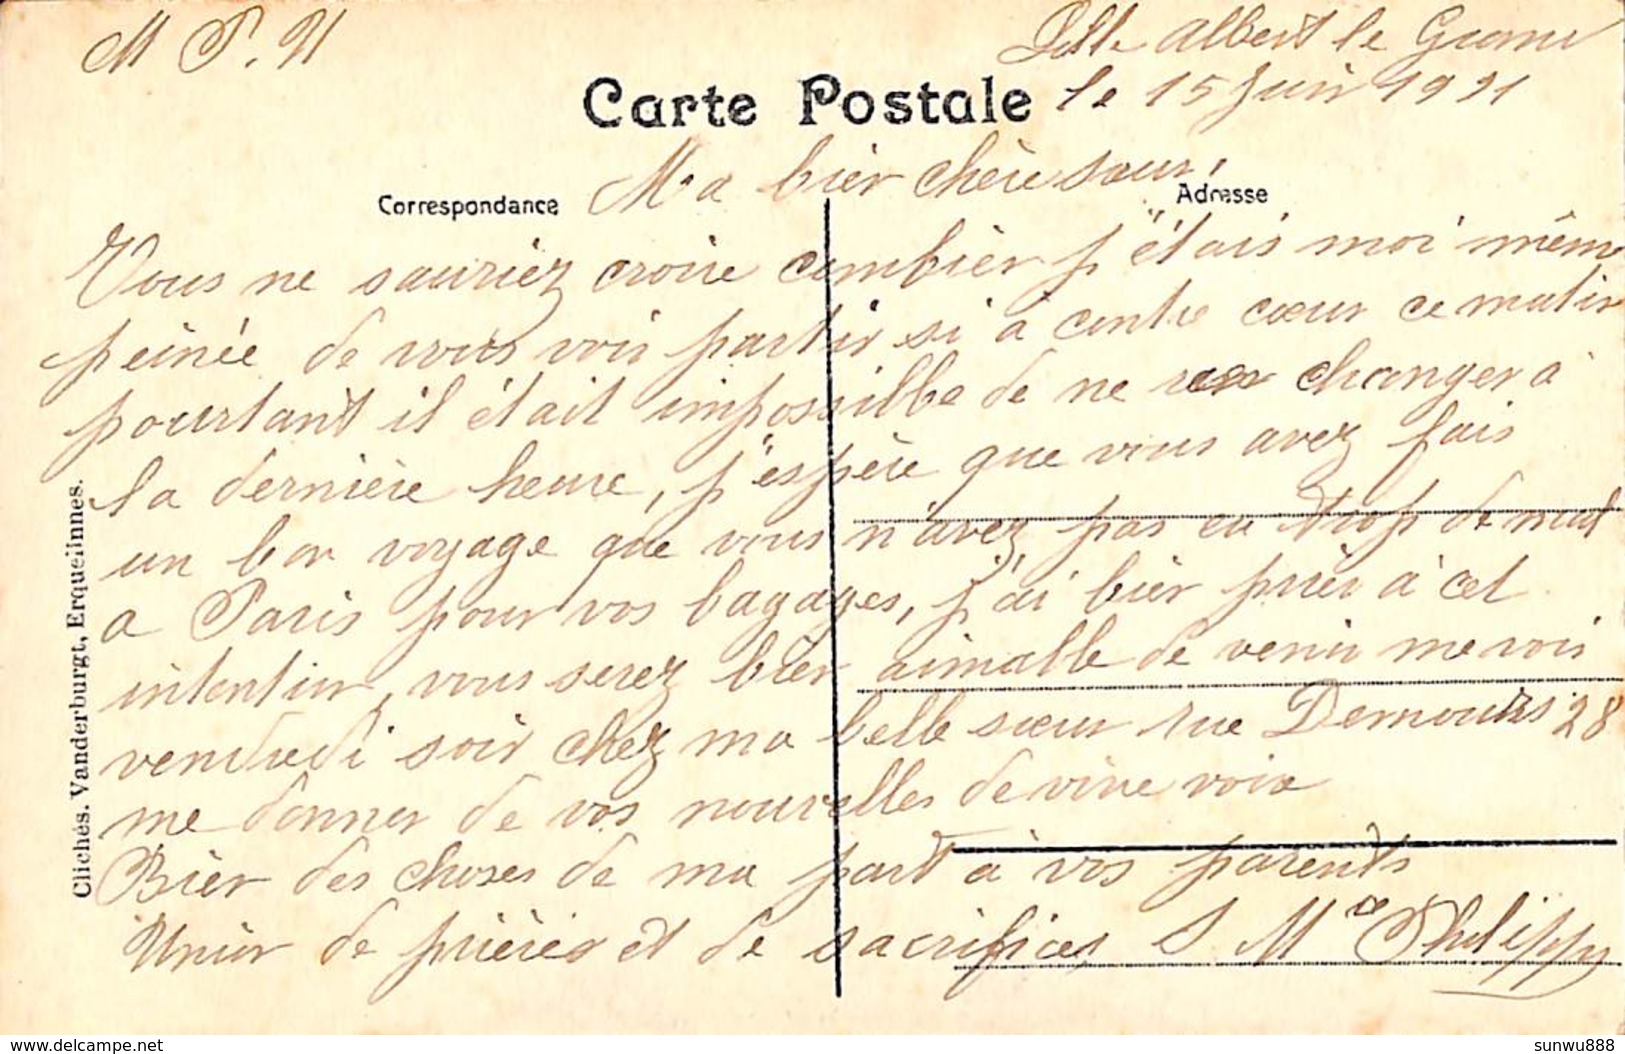 M P. N
Albert le Grand
le 15 Juin 1921
Carte Postale
Ma bien chère sœur,
Correspondance
Adresse
Vous ne sauriez croire combien j'étais moi même
peinée de vous voir partir si à contre cœur ce matin
pourtant il était impossible de ne rien changer à
la dernière heure, j'espère que vous avez fais
un bon voyage que vous n'avez pas eu trop de mal
a Paris pour vos bagages, j'ai bien prier à cet
intention, vous serez bien aimable de venir me voir
vendredi soir chez ma belle sœur rue Demours 28
me donner de vos nouvelles de vive voix
Bien des choses de ma part à vos parents
Union de prières et de sacrifices S Mce Philippy
Clichés. Vanderburgt, Erquelinnes.
www.delcampe.net
sunwu888